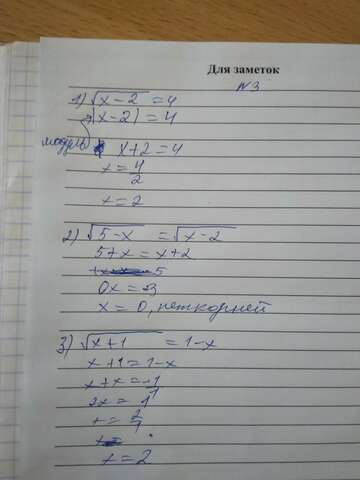 Для заметок
№3
1) √x-2 = 4
|x-2| = 4
модуль
x+2=4
x = 4/2
x = 2
2) √5-x = √x-2
5+x = x+2
0x = -3
x = 0, нет корней
3) √x+1 = 1-x
x+1=1-x
x+x = -1
2x = 1
x = 2